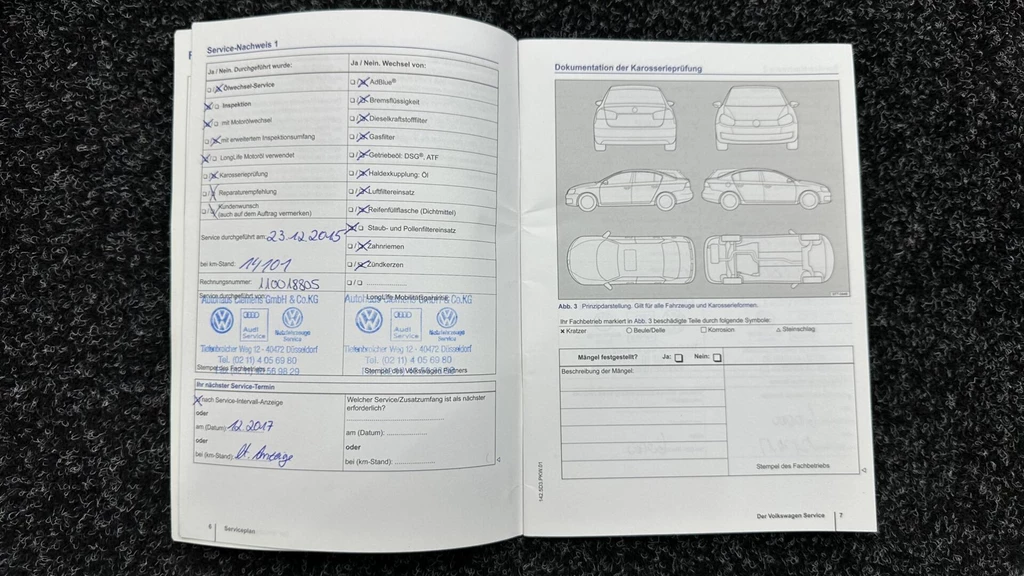 Service-Nachweis 1
Ja / Nein. Durchgeführt wurde:
Ölwechsel-Service
Inspektion
mit Motorölwechsel
mit erweitertem Inspektionsumfang
LongLife Motoröl verwendet
Karosserieprüfung
Reparaturempfehlung
Kundenwunsch
(auch auf dem Auftrag vermerken)
Service durchgeführt am: 23.12.2015
bei km-Stand: 14101
Rechnungsnummer: 110018805
Service durchgeführt von:
Autohaus Clemens GmbH & Co.KG
Audi
Service
Nutzfahrzeuge
Service
Tiefenbroicher Weg 12 - 40472 Düsseldorf
Tel. (02 11) 4 05 69 80
Stempel des Fachbetriebs
Ja / Nein. Wechsel von:
AdBlue®
Bremsflüssigkeit
Dieselkraftstofffilter
Gasfilter
Getriebeöl: DSG®, ATF
Haldexkupplung: Öl
Luftfiltereinsatz
Reifenfüllflasche (Dichtmittel)
Staub- und Pollenfiltereinsatz
Zahnriemen
Zündkerzen
LongLife Mobilitätsgarantie
Autohaus Clemens GmbH & Co.KG
Audi
Service
Nutzfahrzeuge
Service
Tiefenbroicher Weg 12 - 40472 Düsseldorf
Tel. (02 11) 4 05 69 80
Stempel des Volkswagen Partners
Ihr nächster Service-Termin
nach Service-Intervall-Anzeige
oder
am (Datum): 12.2017
oder
bei (km-Stand): lt. Anzeige
Welcher Service/Zusatzumfang ist als nächster
erforderlich?
am (Datum):
oder
bei (km-Stand):
6 Serviceplan
Dokumentation der Karosserieprüfung
Abb. 3 Prinzipdarstellung. Gilt für alle Fahrzeuge und Karosserieformen.
Ihr Fachbetrieb markiert in Abb. 3 beschädigte Teile durch folgende Symbole:
Kratzer Beule/Delle Korrosion Steinschlag
Mängel festgestellt? Ja: Nein:
Beschreibung der Mängel:
Stempel des Fachbetriebs
Der Volkswagen Service 7